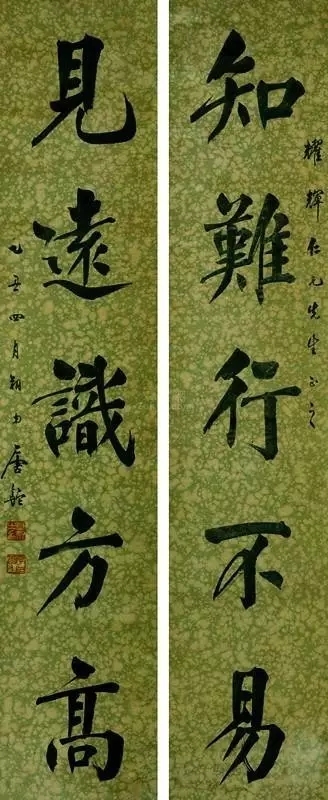 知難行不易
耀輝仁兄先生正之
見遠識方高
乙丑四月朔